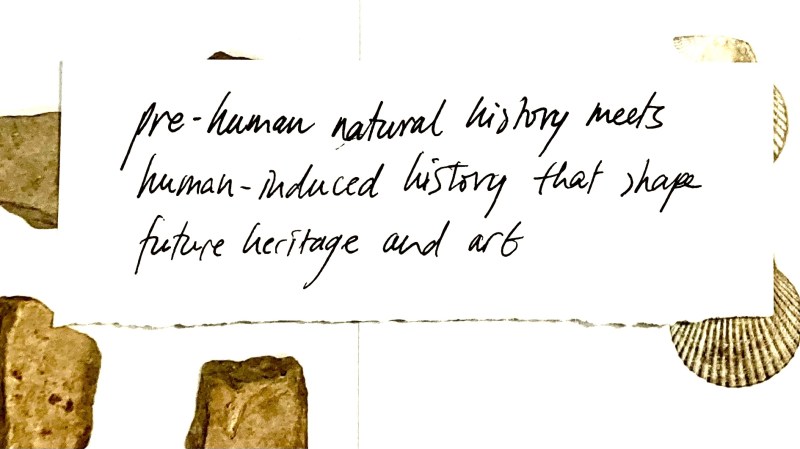 pre-human natural history meets
human-induced history that shape
future heritage and art